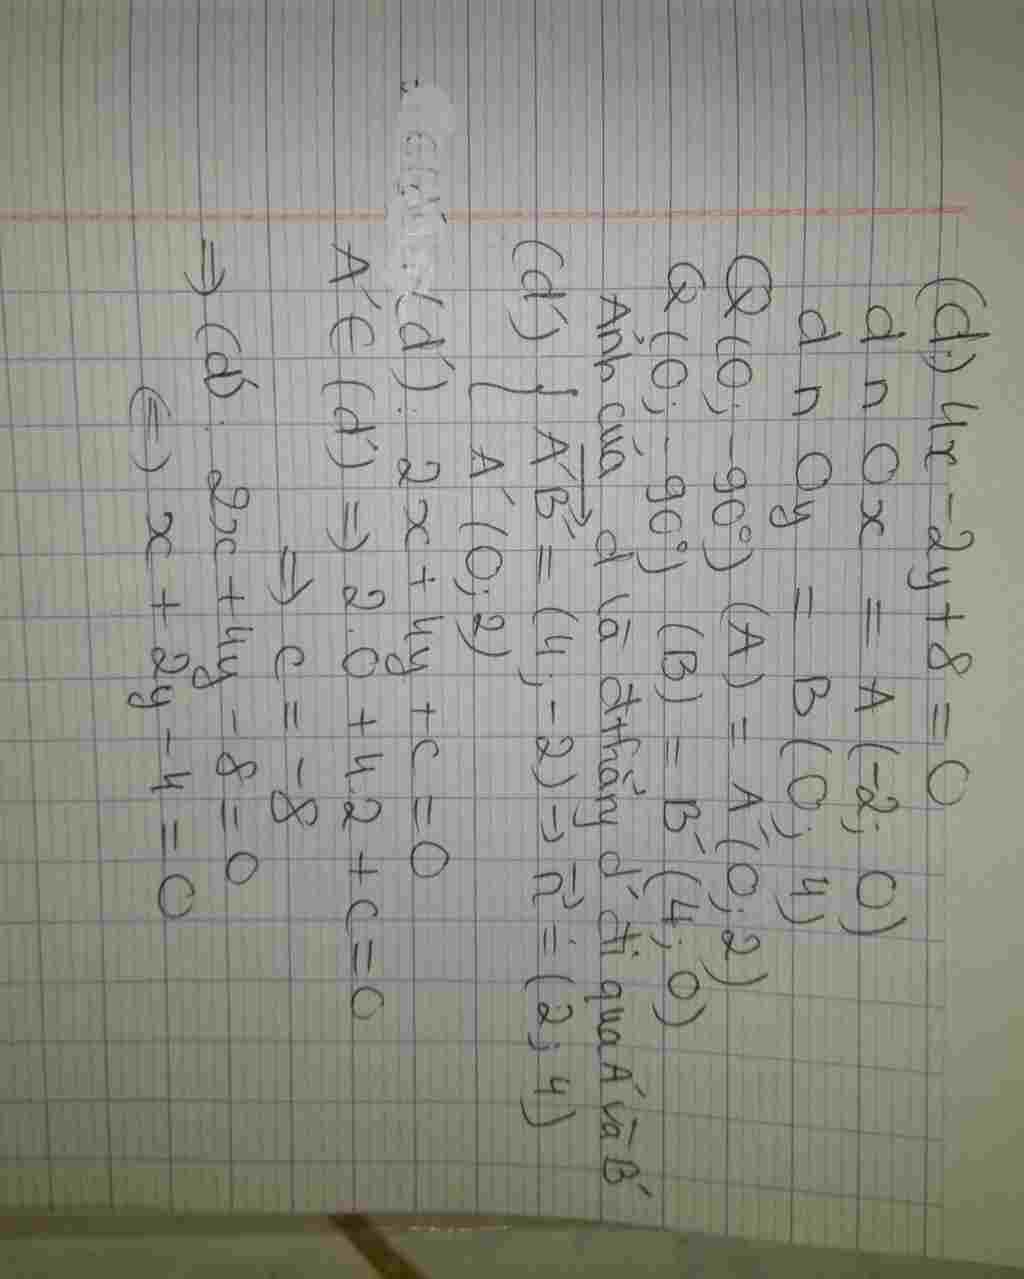 (d) 4x - 2y + 8 = 0
d ∩ Ox = A (-2; 0)
d ∩ Oy = B (0; 4)
Q (O; -90°) (A) = A' (0; 2)
Q (O; -90°) (B) = B' (4; 0)
Ảnh của d là đthẳng d' đi qua A' và B'
(d') { A'B'→ = (4; -2) → n→ = (2; 4)
A' (0; 2)
(d'): 2x + 4y + c = 0
A' ∈ (d') ⇒ 2.0 + 4.2 + c = 0
⇒ c = -8
⇒ (d'): 2x + 4y - 8 = 0
⇔ x + 2y - 4 = 0